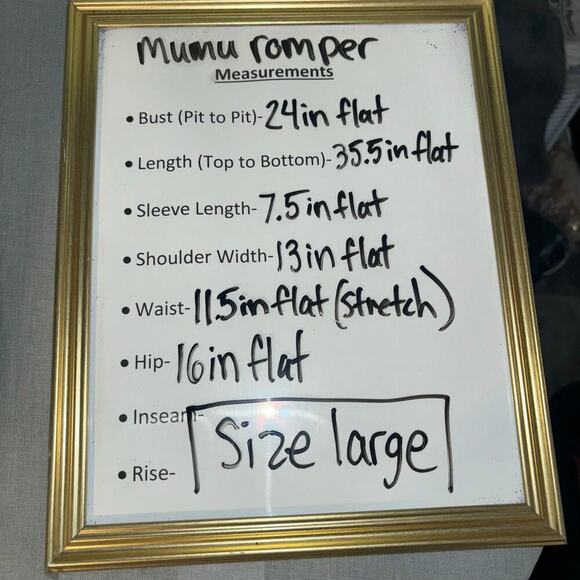 Mumu romper
Measurements
• Bust (Pit to Pit)- 24in flat
• Length (Top to Bottom)- 35.5in flat
• Sleeve Length- 7.5in flat
• Shoulder Width- 13in flat
• Waist- 11.5in flat (stretch)
• Hip- 16in flat
• Inseam-
Size large
• Rise-